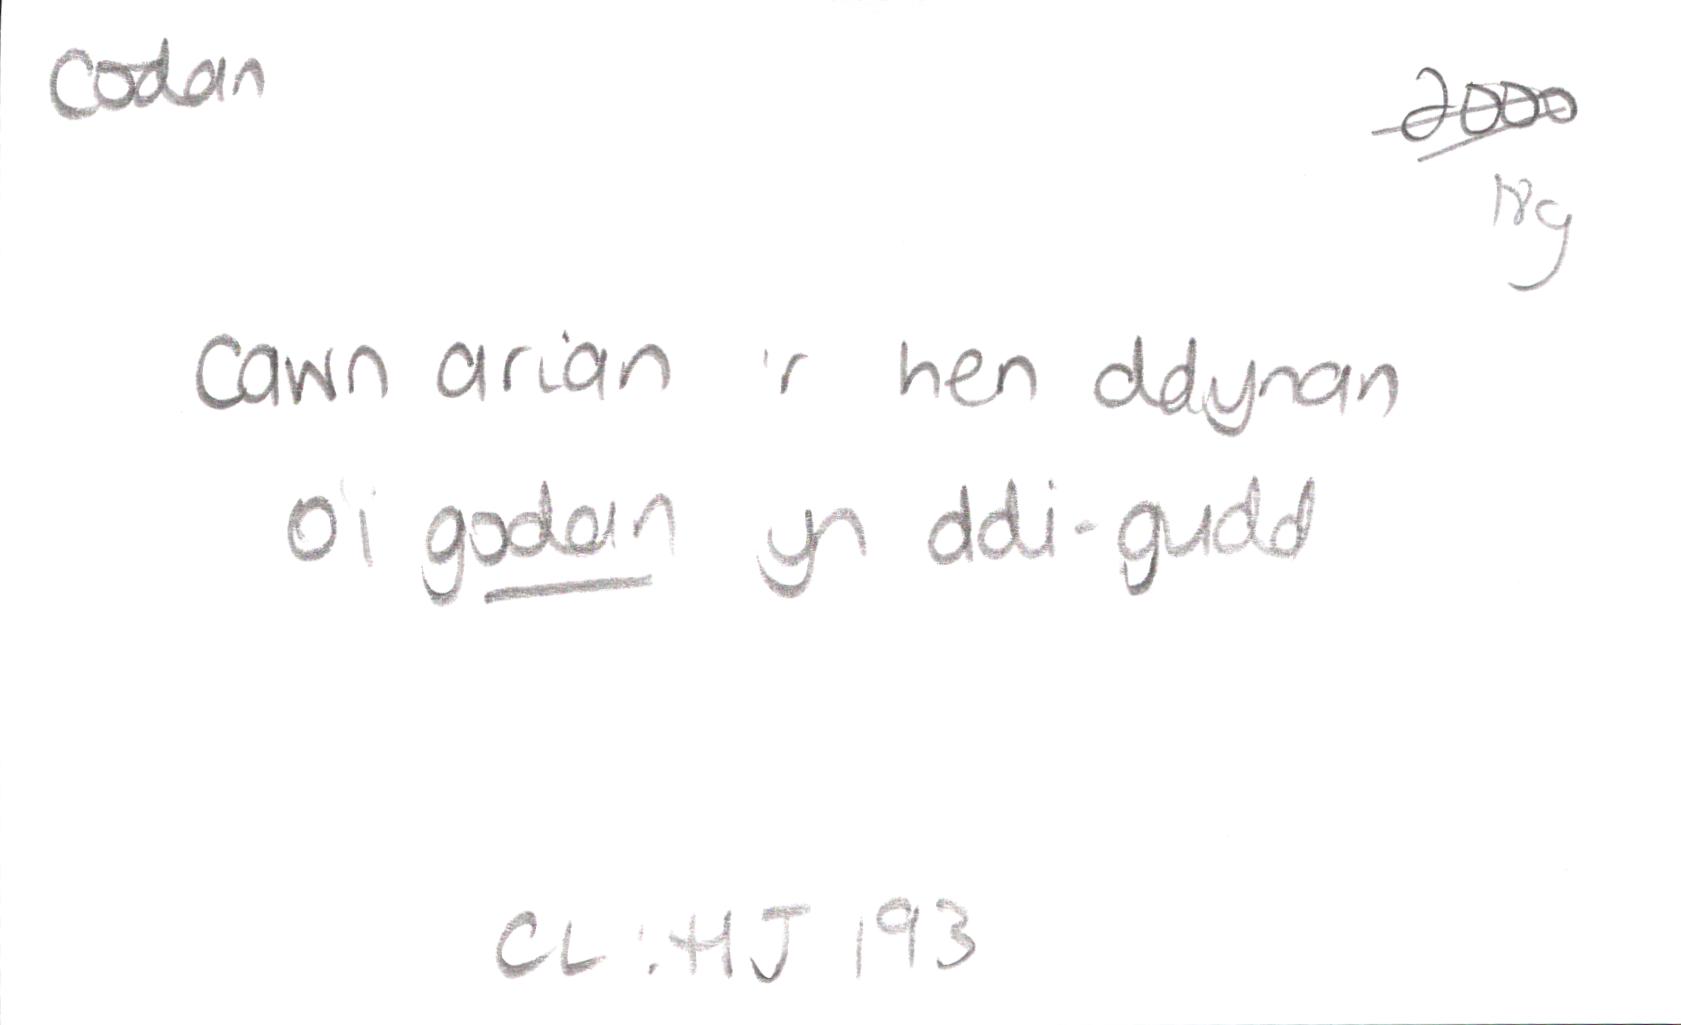 Codan
2000
18g
Cawn arian 'r hen ddynan
O'i godan yn ddi-gudd
CL : HJ 193